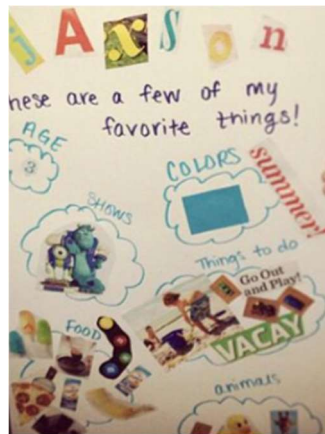 JAxSon
hese are a few of my
favorite things!
AGE
3
COLORS
summer!
SHOWS
Things to do
Go Out
and Play!
VACAY
FOOD
animals